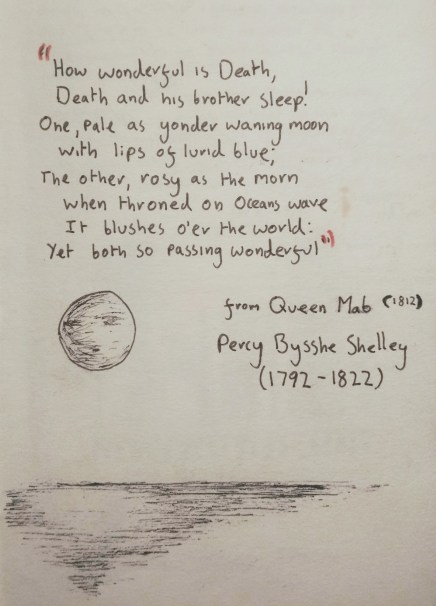 "How wonderful is Death,
Death and his brother sleep!
One, pale as yonder waning moon
with lips of lurid blue;
The other, rosy as the morn
when throned on Oceans wave
It blushes o'er the world:
Yet both so passing wonderful"
from Queen Mab (1812)
Percy Bysshe Shelley
(1792-1822)